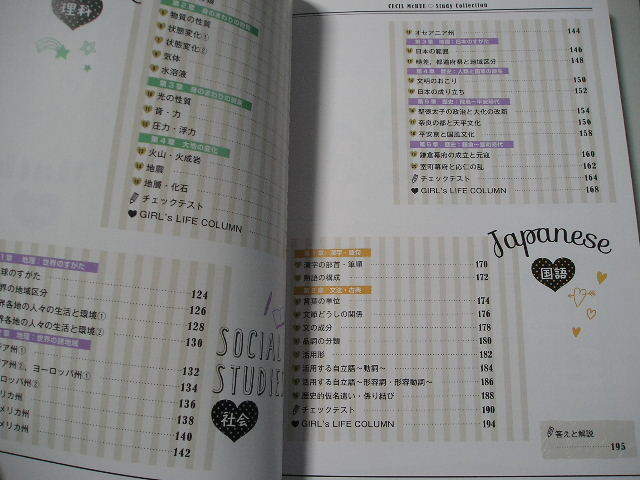 理科
物質の性質
状態変化①
状態変化②
気体
水溶液
光の性質
音・力
圧力・浮力
第4章 大地の変化
火山・火成岩
地震
地層・化石
チェックテスト
GIRL's LIFE COLUMN
地理：世界のすがた
球のすがた 124
界の地域区分 126
界各地の人々の生活と環境① 128
界各地の人々の生活と環境② 130
地理：世界の諸地域
ジア州① 132
ジア州②、ヨーロッパ州① 134
ロッパ州② 136
138
メリカ州 140
メリカ州 142
SOCIAL
STUDIES
社会
CECIL McBEE ♡ Study Collection
オセアニア州 144
第3章 地理：日本のすがた
日本の範囲 146
時差、都道府県と地域区分 148
文明のおこり 150
日本の成り立ち 152
聖徳太子の政治と大化の改新 154
奈良の都と天平文化 156
平安京と国風文化 158
鎌倉幕府の成立と元寇 160
室町幕府と応仁の乱 162
チェックテスト 164
GIRL's LIFE COLUMN 168
Japanese
国語
漢字の部首・筆順 170
熟語の構成 172
第2章 文法・古典
言葉の単位 174
文節どうしの関係 176
文の成分 178
品詞の分類 180
活用形 182
活用する自立語〜動詞〜 184
活用する自立語〜形容詞・形容動詞〜 186
歴史的仮名遣い・係り結び 188
チェックテスト 190
GIRL's LIFE COLUMN 194
答えと解説
195